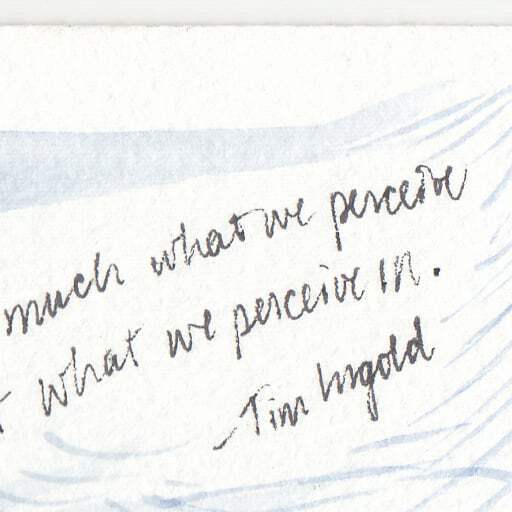 much what we perceive
what we perceive in.
-Tim Ingold